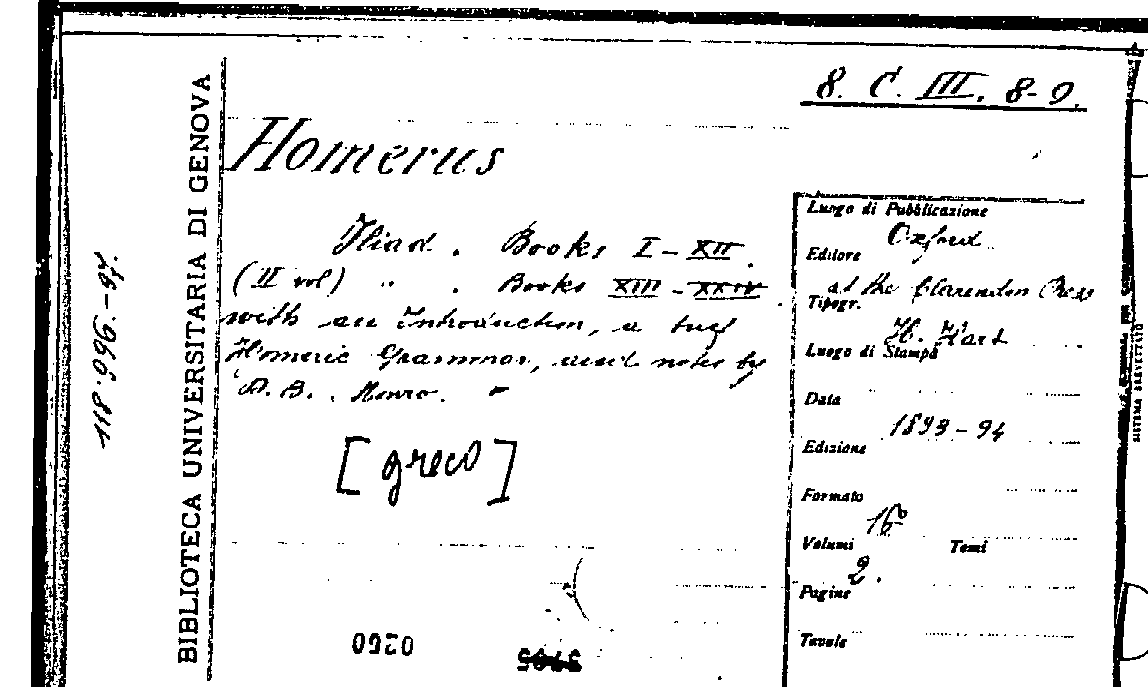 8. C. III. 8-9.
Homerus
Iliad. Books I-XII.
(II vol) " . Books XIII-XXIV
with an Introduction, a
Homeric Grammar, and notes by
D. B. Monro.
[greco]
BIBLIOTECA UNIVERSITARIA DI GENOVA
Luogo di Pubblicazione
Oxford
Editore
at the Clarendon Press
Tipogr.
H. Hart
Luogo di Stampa
Data
1893-94
Edizione
Formato
16°
Volumi Tomi
2.
Pagine
Tavole
0260
SISTEMA BREVETTATO